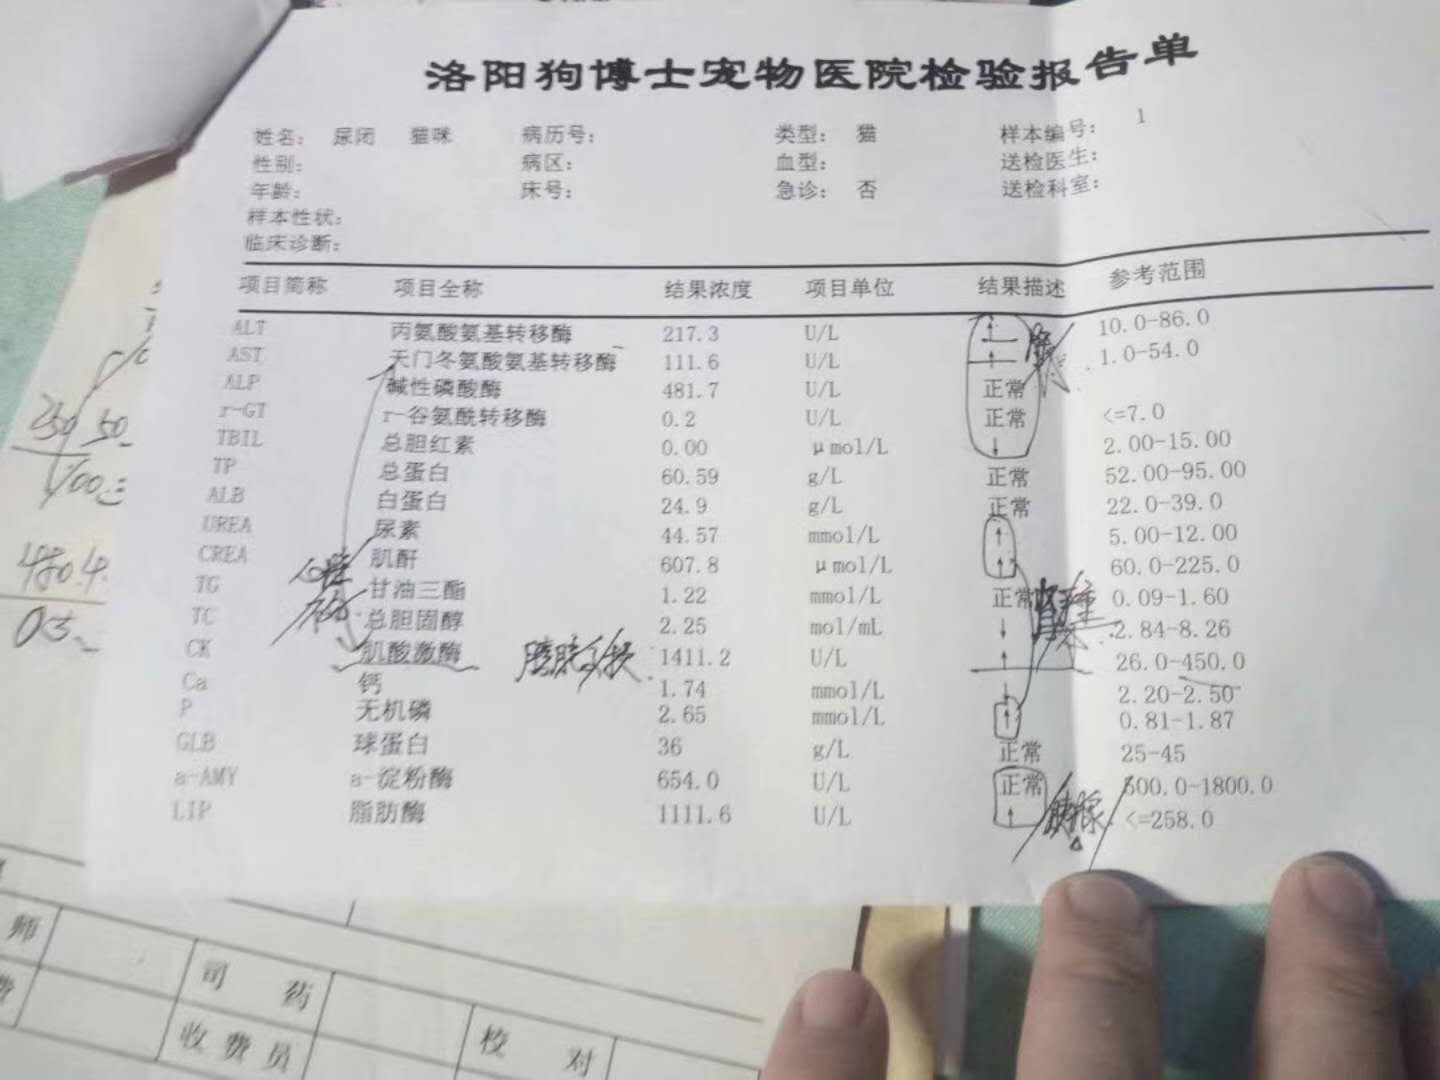 洛阳狗博士宠物医院检验报告单
姓名： 尿闭 猫咪 病历号： 类型： 猫 样本编号： 1
性别： 病区： 血型： 送检医生：
年龄： 床号： 急诊： 否 送检科室：
样本性状：
临床诊断：
项目简称 项目全称 结果浓度 项目单位 结果描述 参考范围
ALT 丙氨酸氨基转移酶 217.3 U/L ↑ 10.0-86.0
AST 天门冬氨酸氨基转移酶 111.6 U/L ↑ 1.0-54.0
ALP 碱性磷酸酶 481.7 U/L 正常
r-GT r-谷氨酰转移酶 0.2 U/L 正常 <=7.0
TBIL 总胆红素 0.00 μmol/L ↓ 2.00-15.00
TP 总蛋白 60.59 g/L 正常 52.00-95.00
ALB 白蛋白 24.9 g/L 正常 22.0-39.0
UREA 尿素 44.57 mmol/L ↑ 5.00-12.00
CREA 肌酐 607.8 μmol/L ↑ 60.0-225.0
TG 甘油三酯 1.22 mmol/L 正常 0.09-1.60
TC 总胆固醇 2.25 mol/mL ↓ 2.84-8.26
CK 肌酸激酶 1411.2 U/L ↑ 26.0-450.0
Ca 钙 1.74 mmol/L ↓ 2.20-2.50
P 无机磷 2.65 mmol/L ↑ 0.81-1.87
GLB 球蛋白 36 g/L 正常 25-45
a-AMY a-淀粉酶 654.0 U/L 正常 500.0-1800.0
LIP 脂肪酶 1111.6 U/L ↑ <=258.0
胰腺
250 50
100
480.4
师
司 药
费
收费员
校 对